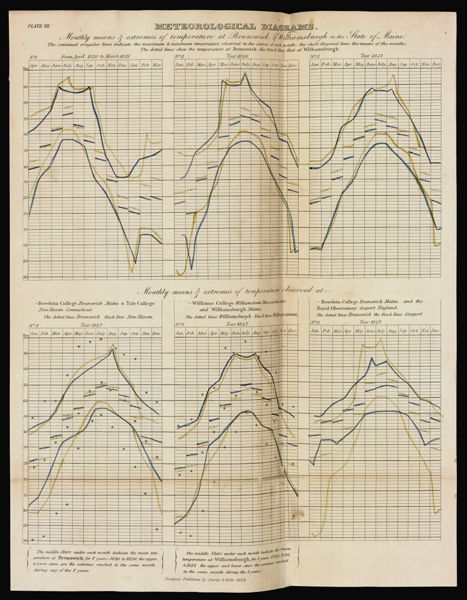 PLATE III
METEOROLOGICAL DIAGRAMS.
Monthly means & extremes of temperature at Brunswick & Williamsburgh in the State of Maine.
The continued irregular lines indicate the maximum & minimum temperature observed in the course of each month; the short diagonal lines the means of the months.
The dotted lines show the temperature at Brunswick, the black line that at Williamsburgh.
No 1 From April 1820 to March 1821
No 2 Year 1826
No 3 Year 1827
Apr. May June July Aug. Sep. Oct. Nov. Dec. Jan. Feb. Mar.
Jan. Feb. Mar. Apr. May June July Aug. Sep. Oct. Nov. Dec.
Jan. Feb. Mar. Apr. May June July Aug. Sep. Oct. Nov. Dec.
Monthly means & extremes of temperature observed at—
—Bowdoin College Brunswick Maine & Yale College
New Haven Connecticut
The dotted lines Brunswick black lines New Haven.
—Williams College Williamstown Massachusetts
and Williamsburg Maine
The dotted lines Williamsburgh black lines Williamstown.
—Bowdoin College Brunswick Maine and the
Royal Observatory Gosport England.
The dotted lines Brunswick the black lines Gosport.
No 4 Year 1827
No 5 Year 1827
No 6 Year 1827
Jan. Feb. Mar. Apr. May June July Aug. Sep. Oct. Nov. Dec.
Jan. Feb. Mar. Apr. May June July Aug. Sep. Oct. Nov. Dec.
Jan. Feb. Mar. Apr. May June July Aug. Sep. Oct. Nov. Dec.
The middle Stars under each month indicate the mean tem-
perature at Brunswick, for 7 years
the upper
& lower stars are the extremes reached in the same month,
during any of the 7 years.
The middle Stars under each month indicate the mean
temperature at Williamsburgh, for
the upper and lower stars the extremes reached
in the same month during the
years.
Portland, Published by Shirley & Hyde 1829